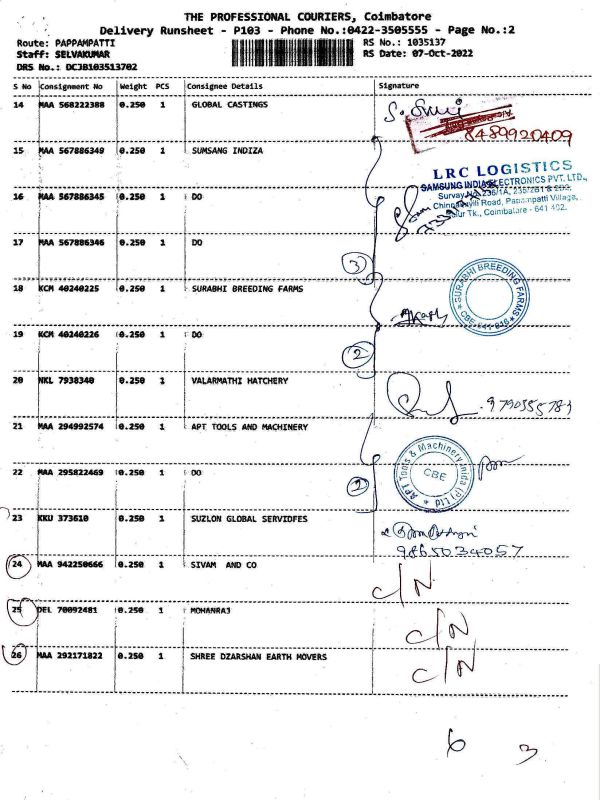 THE PROFESSIONAL COURIERS, Coimbatore
Delivery Runsheet - P103 - Phone No.:0422-3505555 - Page No.:2
Route: PAPPAMPATTI RS No.: 1035137
Staff: SELVAKUMAR RS Date: 07-Oct-2022
DRS No.: DCJB103513702
S No Consignment No Weight PCS Consignee Details Signature
14 MAA 568222388 0.250 1 GLOBAL CASTINGS
8489920409
15 MAA 567886349 0.250 1 SUMSANG INDIZA
LRC LOGISTICS
SAMSUNG INDIA ELECTRONICS PVT. LTD.,
16 MAA 567886345 0.250 1 DO
Survay No. 236/1A, 235/2B1 & 2B2,
Road, Papampatti Village,
Sulur Tk., Coimbatore - 641 402.
17 MAA 567886346 0.250 1 DO
3
18 KCM 40240225 0.250 1 SURABHI BREEDING FARMS
SURABHI BREEDING FARMS
19 KCM 40240226 0.250 1 DO
2
20 NKL 7938340 0.250 1 VALARMATHI HATCHERY
9790355781
21 MAA 294992574 0.250 1 APT TOOLS AND MACHINERY
APT Tools & Machinery India (P) Ltd
CBE
22 MAA 295822469 0.250 1 DO
2
23 KKU 373610 0.250 1 SUZLON GLOBAL SERVIDFES
9865034057
24 MAA 942250666 0.250 1 SIVAM AND CO
C/N
25 DEL 70092481 0.250 1 MOHANRAJ
C/N
26 MAA 292171822 0.250 1 SHREE DZARSHAN EARTH MOVERS
C/N
6 3